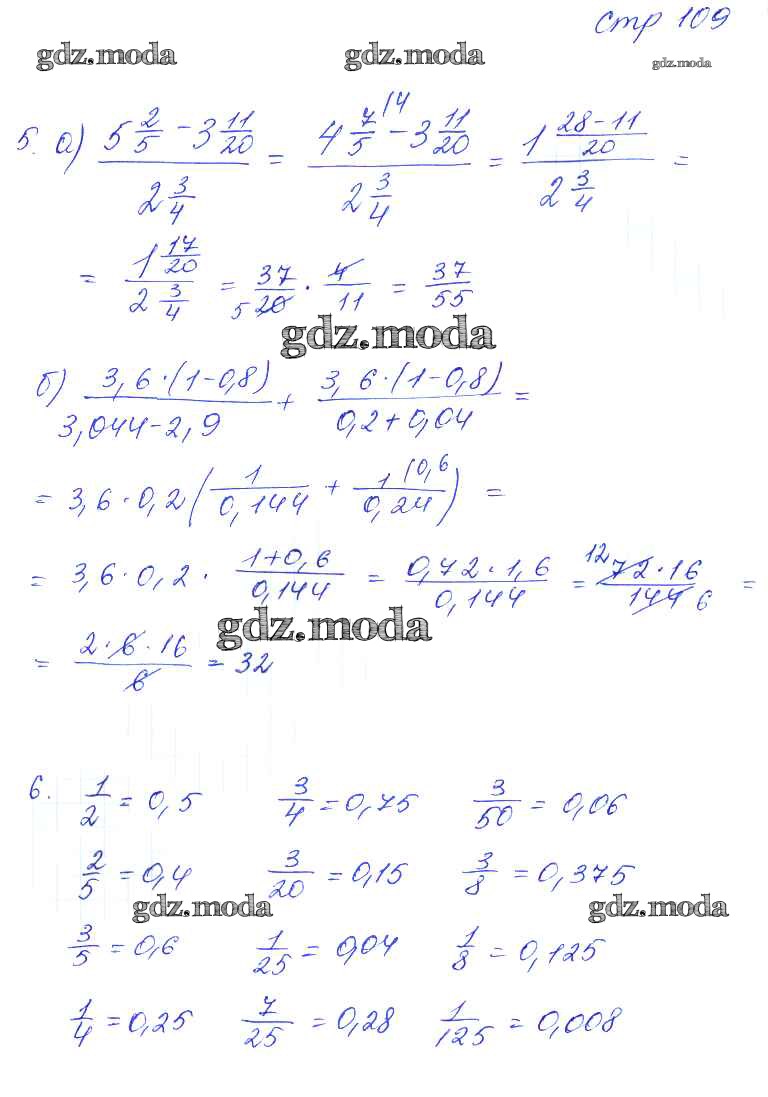 стр 109
gdz.moda gdz.moda gdz.moda
5. а) (5 2/5 - 3 11/20) / (2 3/4) = (4 7/5 /4 - 3 11/20) / (2 3/4) = (1 (28-11)/20) / (2 3/4) =
= (1 17/20) / (2 3/4) = 37/20 5 · 4/11 = 37/55
gdz.moda
б) 3,6·(1-0,8) / (3,044-2,9) + 3,6·(1-0,8) / (0,2+0,04) =
= 3,6·0,2 (1/0,144 + 1 /0,6 / 0,24) =
= 3,6·0,2 · (1+0,6)/0,144 = 0,72·1,6 / 0,144 = 12 72·16 / 144 6 =
gdz.moda
= 2·6·16 / 6 = 32
6. 1/2 = 0,5 3/4 = 0,75 3/50 = 0,06
2/5 = 0,4 3/20 = 0,15 3/8 = 0,375
gdz.moda gdz.moda
3/5 = 0,6 1/25 = 0,04 1/8 = 0,125
1/4 = 0,25 7/25 = 0,28 1/125 = 0,008